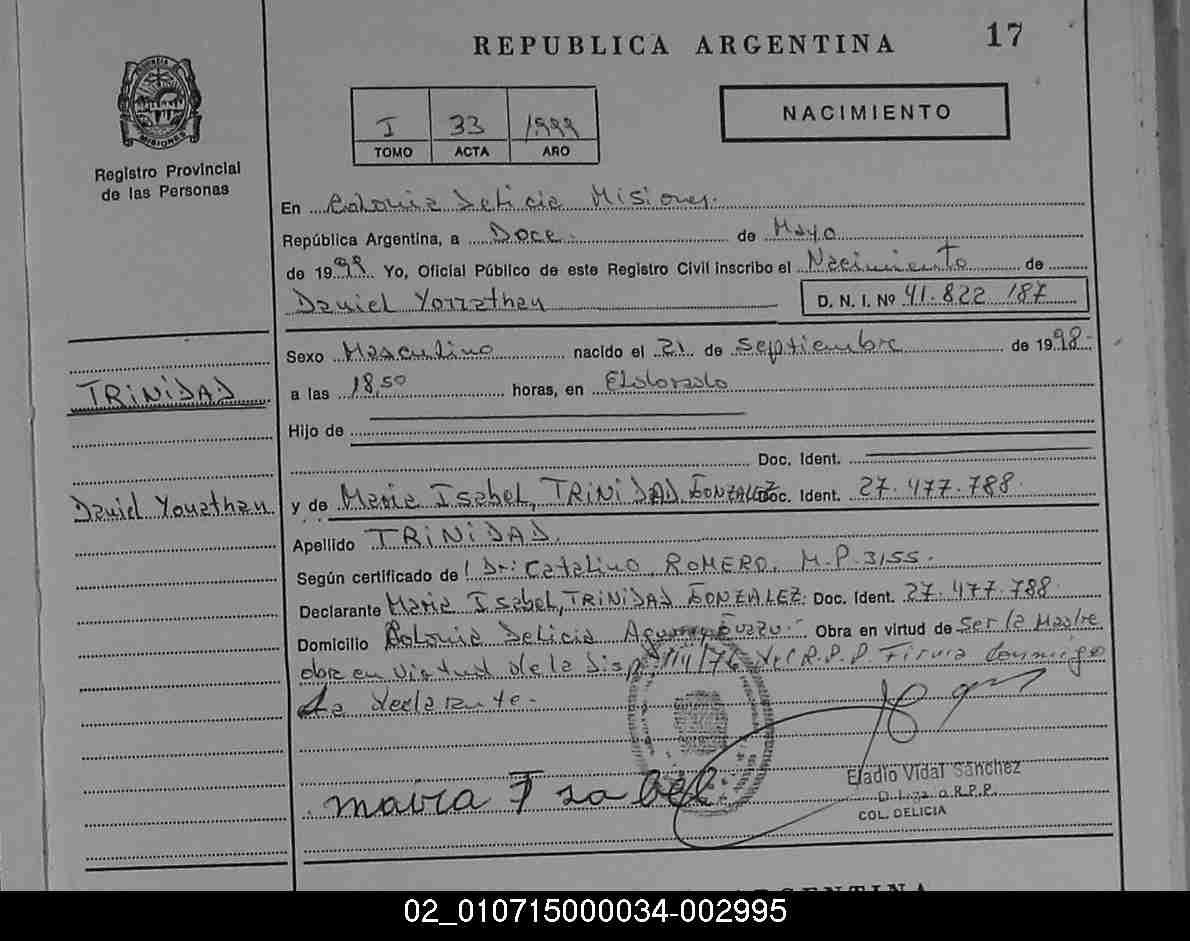 REPUBLICA ARGENTINA
17
PROVINCIA DE MISIONES
Registro Provincial
de las Personas
I 33 1999
TOMO ACTA AÑO
NACIMIENTO
En Colonia Delicia Misiones.
República Argentina, a Doce. de Mayo
de 1999 Yo, Oficial Público de este Registro Civil inscribo el Nacimiento de
Daniel Yonathan D. N. I. Nº 41.822 187
Sexo Masculino nacido el 21 de septiembre de 1998.
TRINIDAD
a las 18,50 horas, en Eldorado
Hijo de
Doc. Ident.
Daniel Yonathan
y de Maria Isabel, TRINIDAD GONZALEZ Doc. Ident. 27.477.788.
Apellido TRINIDAD.
Según certificado de Dr: Catalino ROMERO. M.P. 3155.
Declarante Maria Isabel, TRINIDAD GONZALEZ. Doc. Ident. 27.477.788.
Domicilio Colonia Delicia Obra en virtud de Ser la Madre
obra en virtud de la Disp. 111/76 del R.P.P. Firma Conmigo
La declarante.-
maria Isabel
Eladio Vidal Sanchez
R.P.P.
COL. DELICIA
ARGENTINA
02_010715000034-002995